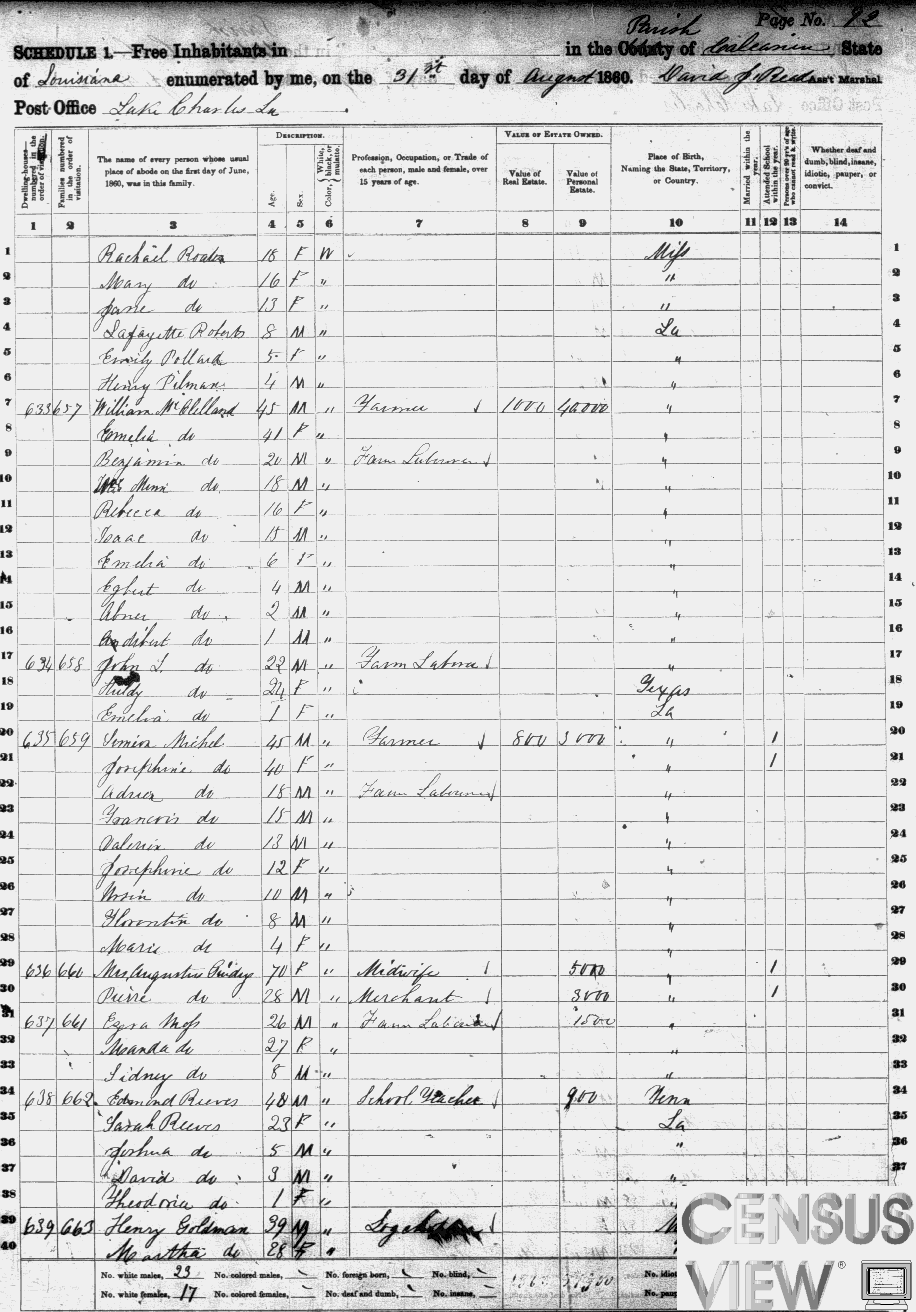 Page No. 92
SCHEDULE 1.—Free Inhabitants in in the County Parish of Calcasieu State
of Louisiana enumerated by me, on the 31st day of August 1860. David J. Reed Ass't Marshal.
Post Office Lake Charles La
Dwelling-houses—numbered in the order of visitation.
Families numbered in the order of visitation.
The name of every person whose usual place of abode on the first day of June, 1860, was in this family.
DESCRIPTION.
Age.
Sex.
Color, White, black, or mulatto.
Profession, Occupation, or Trade of each person, male and female, over 15 years of age.
VALUE OF ESTATE OWNED.
Value of Real Estate.
Value of Personal Estate.
Place of Birth, Naming the State, Territory, or Country.
Married within the year.
Attended School within the year.
Persons over 20 y'rs of age who cannot read & write.
Whether deaf and dumb, blind, insane, idiotic, pauper, or convict.
1 2 3 4 5 6 7 8 9 10 11 12 13 14
1 Rachael 18 F W Miss 1
2 Mary do 16 F " " 2
3 Jane do 13 F " " 3
4 Lafayette Roberts 8 M " La 4
5 Emily Pollard 5 F " " 5
6 Henry Pilman 4 M " " 6
7 633 657 William McClelland 45 M " Farmer 1000 40000 " 7
8 Emelia do 41 F " " 8
9 Benjamin do 20 M " Farm Labourer " 9
10 do 18 M " " 10
11 Rebecca do 16 F " " 11
12 Isaac do 15 M " " 12
13 Emelia do 6 F " " 13
14 Egbert do 4 M " " 14
15 Abner do 2 M " " 15
16 do 1 M " " 16
17 634 658 John L. do 22 M " Farm Labourer " 17
18 do 24 F " Texas 18
19 Emelia do 1 F " La 19
20 635 659 Michel 45 M " Farmer 800 3000 " 1 20
21 Josephine do 40 F " " 1 21
22 Adrien do 18 M " Farm Labourer " 22
23 Francois do 15 M " " 23
24 Valerin do 13 M " " 24
25 Josephine do 12 F " " 25
26 Ursin do 10 M " " 26
27 Florentin do 8 M " " 27
28 Marie do 4 F " " 28
29 636 660 Mrs Augustin 70 F " Midwife 5000 " 1 29
30 Pierre do 28 M " Merchant 3000 " 1 30
31 637 661 Ezra Moss 26 M " Farm Labourer 1500 " 31
32 Manda do 27 F " " 32
33 Sidney do 8 M " " 33
34 638 662 Edmond Reeves 48 M " School Teacher 900 Tenn 34
35 Sarah Reeves 23 F " La 35
36 Joshua do 5 M " " 36
37 David do 3 M " " 37
38 Theodoria do 1 F " 38
39 639 663 Henry Goldman 39 M "
40 Martha do 28 F "
No. white males, 23 No. colored males, No. foreign born, No. blind,
No. white females, 17 No. colored females, No. deaf and dumb, No. insane,
CENSUS
VIEW®